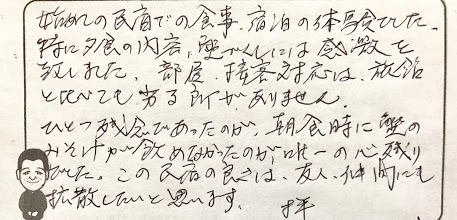 始めての民宿での食事、宿泊の体験でした。
特に夕食の内容、蟹づくしには感激を
致しました。部屋、接客対応は、旅館
と比べても劣る所がありません。
ひとつ残念であったのが、朝食時に蟹の
みそ汁が飲めなかったのが、唯一の心残り
でした。この民宿の良さは、友人、仲間にも
拡散したいと思います。 拝